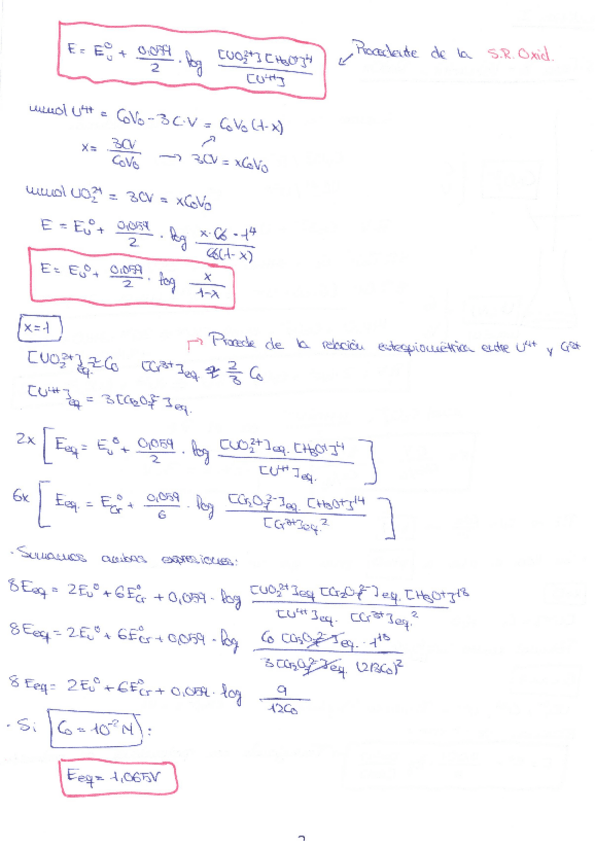 E = E_U⁰ + 0,059/2 · log [UO₂²⁺][H₃O⁺]⁴/[U⁴⁺] ↙ Procedente de la S.R. Oxid.
mmol U⁴⁺ = C₀V₀ - 3C·V = C₀V₀(1-x)
x = 3CV/C₀V₀ → 3CV = xC₀V₀
mmol UO₂²⁺ = 3CV = xC₀V₀
E = E_U⁰ + 0,059/2 · log x·C₀·1⁴/C₀(1-x)
E = E_U⁰ + 0,059/2 · log x/1-x
x=1
→ Procede de la relación estequiométrica entre U⁴⁺ y Cr³⁺
[UO₂²⁺]eq. ≈ C₀ [Cr³⁺]eq ≈ 2/3 C₀
[U⁴⁺]eq = 3[Cr₂O₇²⁻]eq.
2x [Eeq = E_U⁰ + 0,059/2 · log [UO₂²⁺]eq. [H₃O⁺]⁴/[U⁴⁺]eq.]
6x [Eeq. = E_Cr⁰ + 0,059/6 · log [Cr₂O₇²⁻]eq. [H₃O⁺]¹⁴/[Cr³⁺]eq²]
· Sumamos ambas expresiones:
8Eeq = 2E_U⁰ + 6E_Cr⁰ + 0,059 · log [UO₂²⁺]eq [Cr₂O₇²⁻]eq. [H₃O⁺]¹⁸/[U⁴⁺]eq. [Cr³⁺]eq²
8Eeq = 2E_U⁰ + 6E_Cr⁰ + 0,059 · log C₀ [Cr₂O₇²⁻]eq. · 1¹⁸/3[Cr₂O₇²⁻]eq. (2/3C₀)²
8Eeq = 2E_U⁰ + 6E_Cr⁰ + 0,059 · log 9/12C₀
· Si C₀ = 10⁻² N :
Eeq = 1,065V